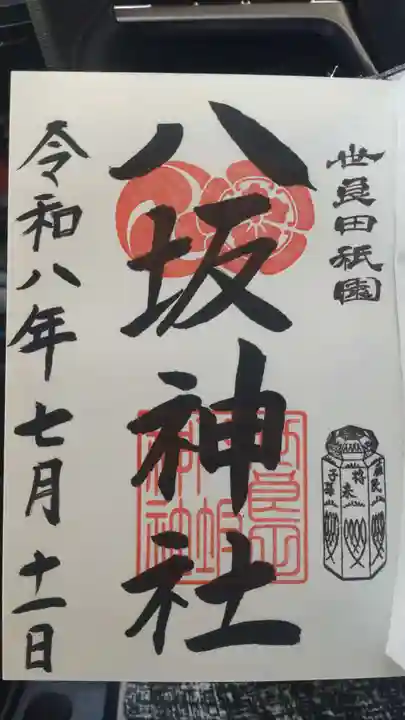 世良田祇園
八坂神社
令和八年七月十一日
蘇民
将来
子孫